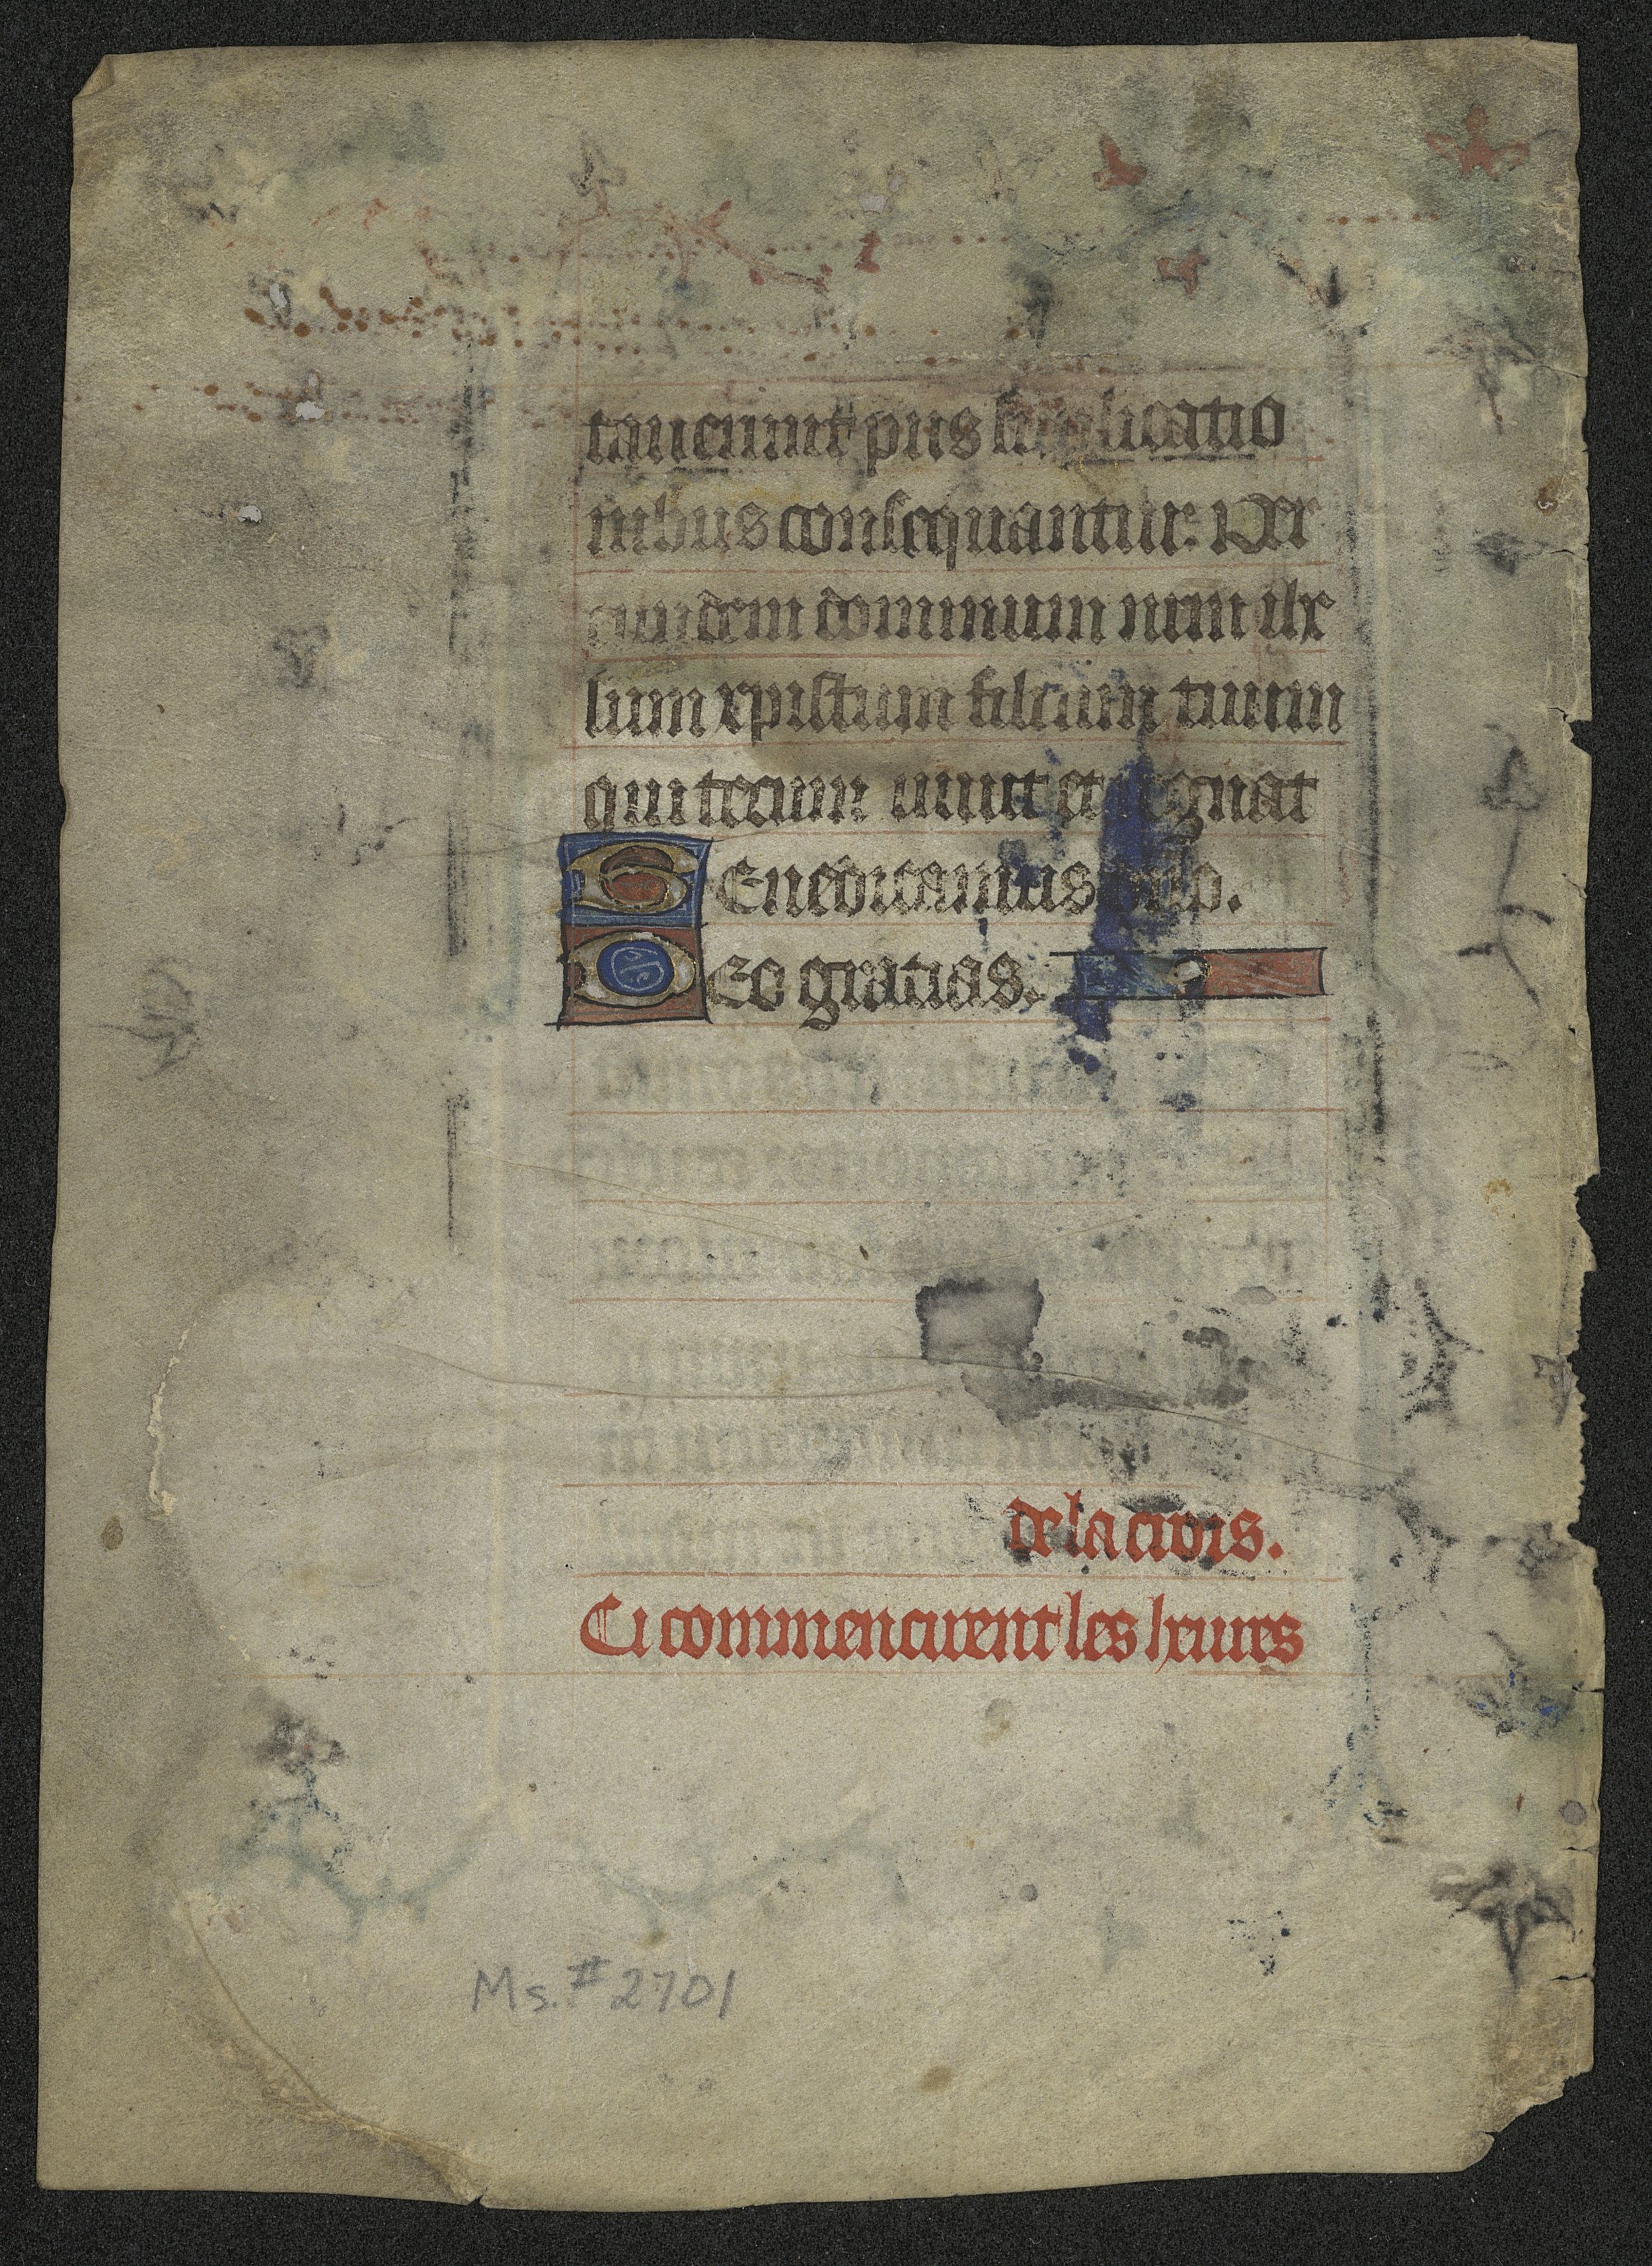 tauerunt piis supplicatio
nibus consequantur. Per
eundem dominum nrm ihe
sum xpistum filium tuum
qui tecum uiuit et regnat
Benedicamus dno.
Deo gratias.
de la crois.
Ci commencierent les heures
Ms. #2701